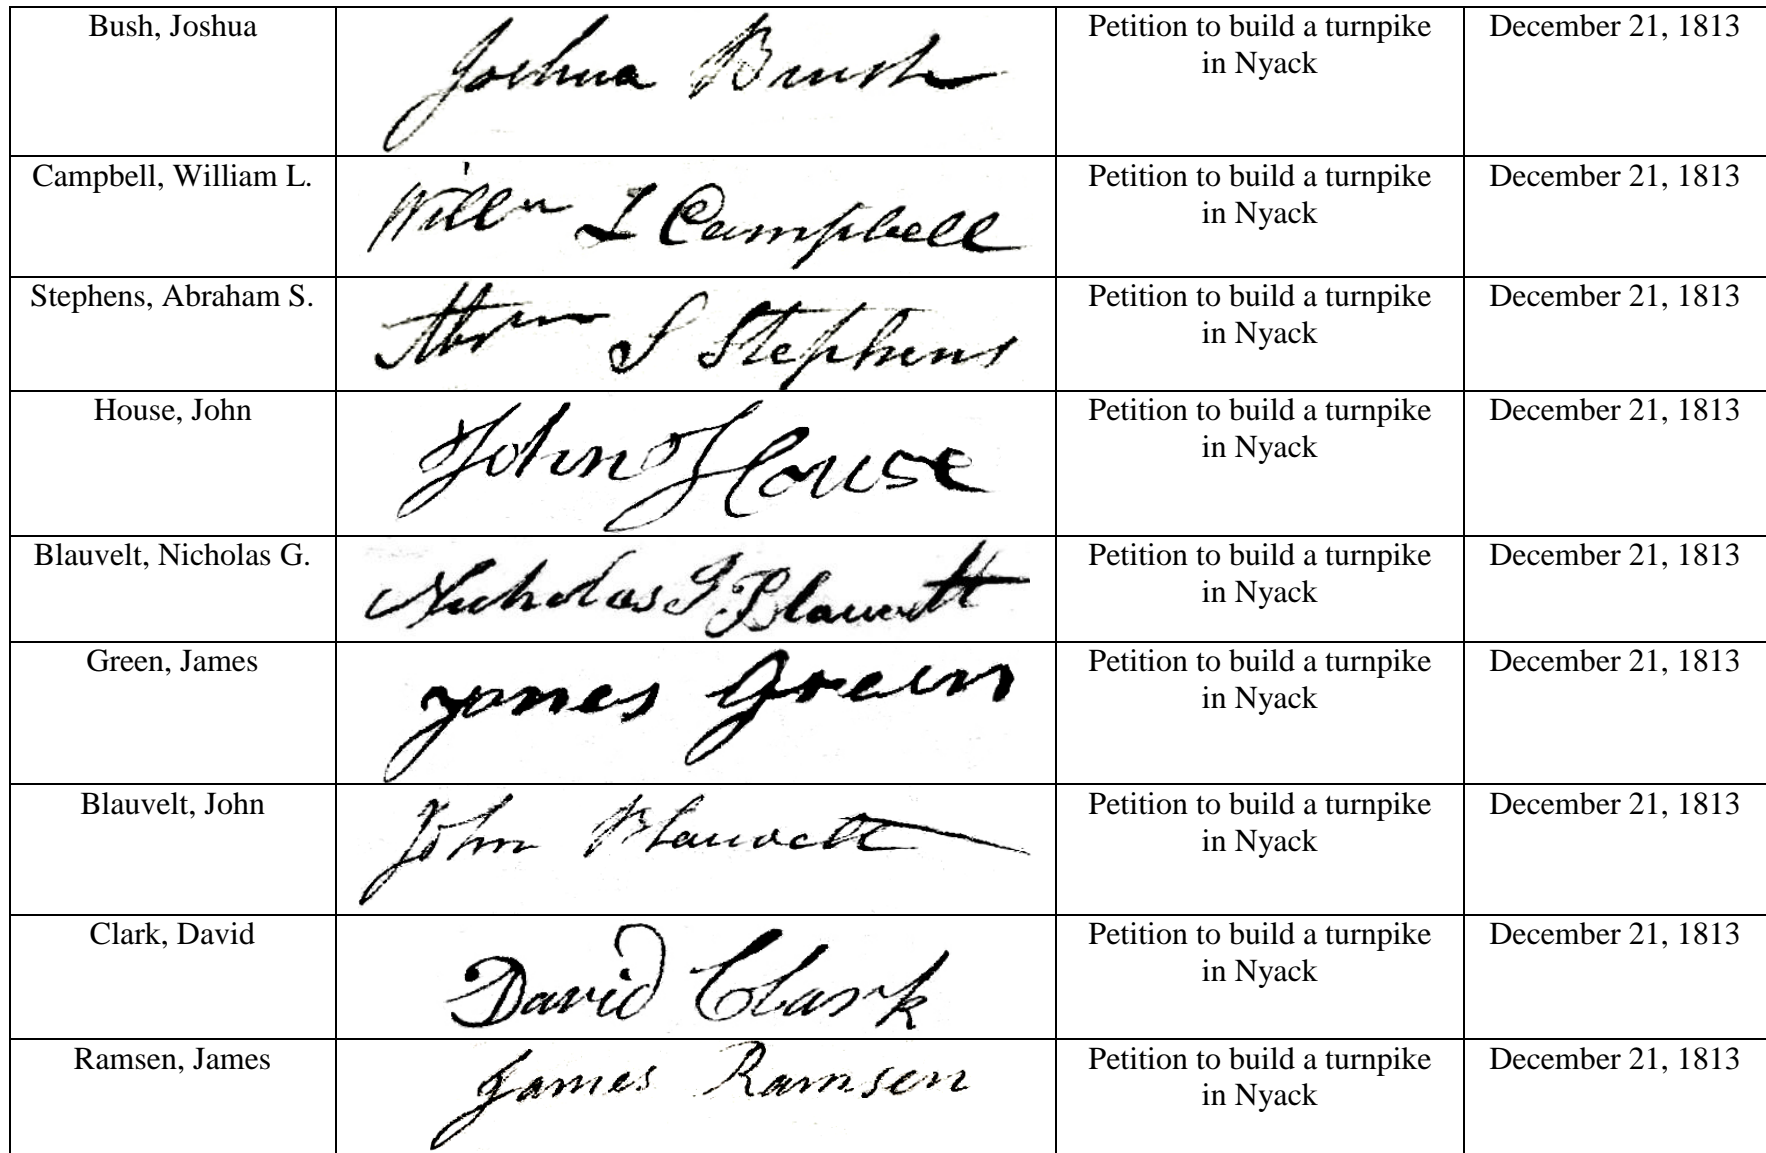 Bush, Joshua
Joshua Brush
Petition to build a turnpike
in Nyack
December 21, 1813
Campbell, William L.
Willm L Campbell
Petition to build a turnpike
in Nyack
December 21, 1813
Stephens, Abraham S.
Abrm S Stephens
Petition to build a turnpike
in Nyack
December 21, 1813
House, John
John House
Petition to build a turnpike
in Nyack
December 21, 1813
Blauvelt, Nicholas G.
Nicholas G Blauvelt
Petition to build a turnpike
in Nyack
December 21, 1813
Green, James
James Green
Petition to build a turnpike
in Nyack
December 21, 1813
Blauvelt, John
John Blauvelt
Petition to build a turnpike
in Nyack
December 21, 1813
Clark, David
David Clark
Petition to build a turnpike
in Nyack
December 21, 1813
Ramsen, James
James Ramsen
Petition to build a turnpike
in Nyack
December 21, 1813